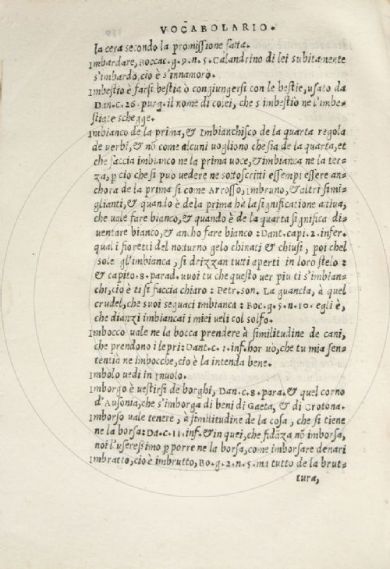 VOCABOLARIO.
la cera secondo la promissione fatta.
Imbardare, Boccac.g.9.n.5. Calandrino di lei subitamente
s'imbardò, cio è s'innamorò.
Imbestio è farsi bestia ò congiungersi con le bestie, usato da
Dan.c.26.purg.il nome di colei, che s'imbestiò ne l'imbe-
stiate schegge.
Imbianco de la prima, & Imbianchisco de la quarta regola
de verbi, & nõ come alcuni uogliono che sia de la quarta, et
che faccia imbianco ne la prima uoce, & imbianca ne la ter-
za, p cio che si puo uedere ne sotoscritti essempi essere an-
chora de la prima si come Arrosso, imbruno, & altri simi-
glianti, & quando è de la prima hà la significatione attiua,
che uale far bianco, & quando è de la quarta significa di-
uentare bianco, & an.ho fare bianco: Dant.capi.2.infer.
quali fioretti del notturno gelo chinati & chiusi, poi chel
sole gl'imbianca, si drizzan tutti aperti in loro stelo:
& capito.8.parad.uuoi tu che questo uer piu ti s'imbian-
chi, cio è ti si faccia chiaro: Petr.son. La guancia, à quel
crudel, che suoi seguaci imbianca: Boc.g.5.n.10.egli è,
che dianzi imbiancai i miei ueli col solfo.
Imbocco uale ne la bocca prendere à similitudine de cani,
che prendono i lepri: Dant.c.7.inf.hor uò, che tu mia sen-
tentia ne imbocche, cio è la intenda bene.
Imbolo uedi in Inuolo.
Imborgo è uestirsi de borghi, Dan.c.8.para.& quel corno
d'Ausonia, che s'imborga di beni di Gaeta, & di Crotona.
Imborso uale tenere, à similitudine de la cosa, che si tiene
ne la borsa: Da.c.11.inf.& in quei, che fidãza nõ imborsa,
noi l'useressimo p porre ne la borsa, come imborsare denari
Imbratto, cio è imbrutto, Bo.g.2.n.5.ma tutto de la brut-
tura,